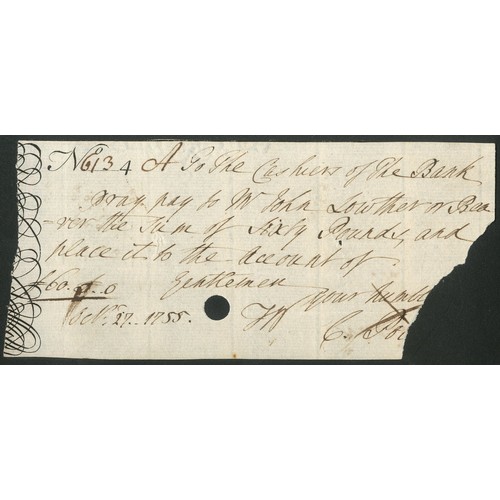 No 6134 A To The Cashiers of the Bank
pray pay to Mr John Lowther or Bea
-rer the Sum of Sixty Pounds, and
place it to the account of.
£60.0.0 Gentlemen your humb
Octr. 27. 1755.
C.